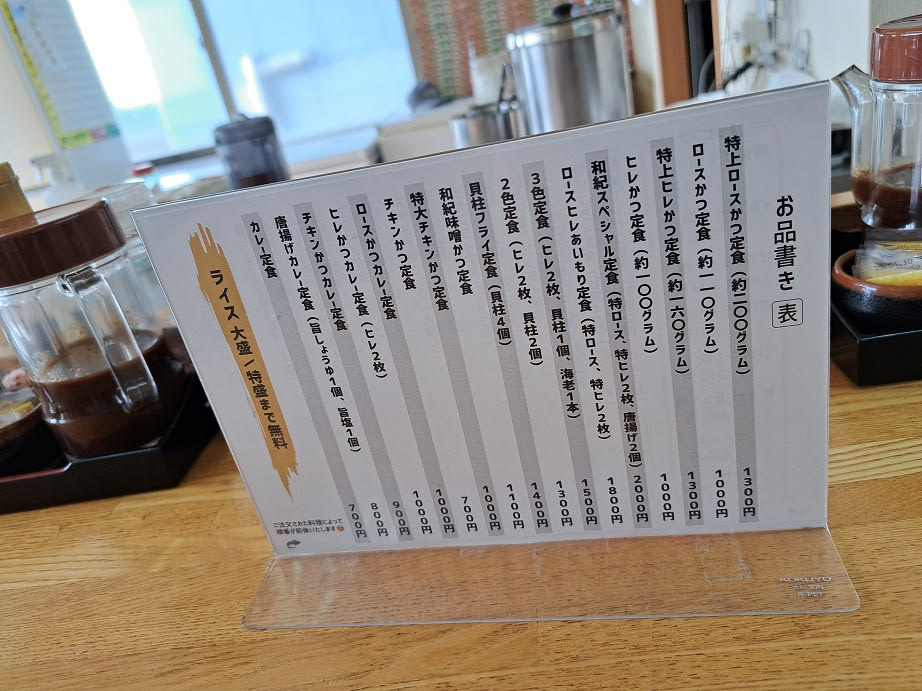 お品書き 表
特上ロースかつ定食（約二〇〇グラム） 1300円
ロースかつ定食（約一一〇グラム） 1000円
特上ヒレかつ定食（約一六〇グラム） 1300円
ヒレかつ定食（約一〇〇グラム） 1000円
和紀スペシャル定食（特ロース、特ヒレ2枚、唐揚げ2個） 2000円
ロースヒレあいもり定食（特ロース、特ヒレ2枚） 1800円
3色定食（ヒレ2枚、貝柱1個、海老1本） 1500円
2色定食（ヒレ2枚、貝柱2個） 1300円
貝柱フライ定食（貝柱4個） 1400円
和紀味噌かつ定食 1100円
特大チキンかつ定食 1000円
チキンかつ定食 700円
ロースかつカレー定食 1000円
ヒレかつカレー定食（ヒレ2枚） 1000円
チキンかつカレー定食 900円
唐揚げカレー定食（旨しょうゆ1個、旨塩1個） 800円
カレー定食 700円
ライス 大盛/特盛まで無料
ご注文された料理によって
順番が前後いたします
KOKUYO